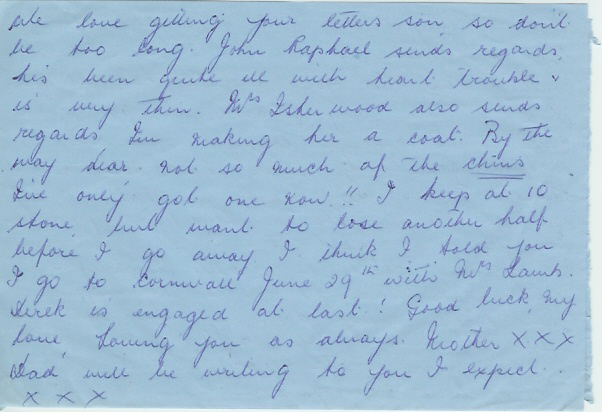 We love getting your letters son so don't
be too long. John Raphael sends regards,
he's been quite ill with heart trouble &
is very thin. Mrs Isherwood also sends
regards I'm making her a coat. By the
way dear not so much of the chins
I've only got one now!! I keep at 10
stone, but want to lose another half
before I go away. I think I told you
I go to Cornwall June 29th with Mrs Lamb.
Derek is engaged at last! Good luck, my
love, loving you as always. Mother X X X
Dad will be writing to you I expect..
X X X